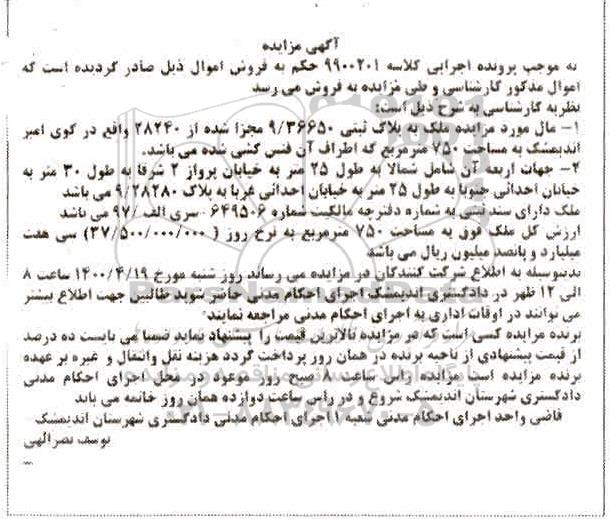 آگهی مزایده
به موجب پرونده اجرایی کلاسه ۹۹۰۰۲۰۱ حکم به فروش اموال ذیل صادر گردیده است که
اموال مذکور کارشناسی و طی مزایده به فروش می رسد
نظریه کارشناسی به شرح ذیل است:
۱- مال مورد مزایده ملک به پلاک ثبتی ۹/۳۶۶۵۰ مجزا شده از ۲۸۲۴۰ واقع در کوی امیر
اندیمشک به مساحت ۷۵۰ مترمربع که اطراف آن فنس کشی شده می باشد.
۲- جهات اربعه آن شامل شمالا به طول ۲۵ متر به خیابان پرواز ۲ شرقا به طول ۳۰ متر به
خیابان احداثی جنوبا به طول ۲۵ متر به خیابان احداثی غربا به پلاک ۹/۲۸۲۸۰ می باشد
ملک دارای سند ثبتی به شماره دفترچه مالکیت شماره ۶۴۹۵۰۶ سری الف /۹۷ می باشد
ارزش کل ملک فوق به مساحت ۷۵۰ مترمربع به نرخ روز ( ۳۷/۵۰۰/۰۰۰/۰۰۰) سی هفت
میلیارد و پانصد میلیون ریال می باشد
بدینوسیله به اطلاع شرکت کنندگان در مزایده می رساند روز شنبه مورخ ۱۴۰۰/۴/۱۹ ساعت ۸
الی ۱۲ ظهر در دادگستری اندیمشک اجرای احکام مدنی حاضر شوید طالبین جهت اطلاع بیشتر
می توانند در اوقات اداری به اجرای احکام مدنی مراجعه نمایند
برنده مزایده کسی است که در مزایده بالاترین قیمت را پیشنهاد نماید ضمنا می بایست ده درصد
از قیمت پیشنهادی از ناحیه برنده در همان روز پرداخت گردد هزینه نقل وانتقال و غیره بر عهده
برنده مزایده است مزایده راس ساعت ۸ صبح روز موعود در محل اجرای احکام مدنی
دادگستری شهرستان اندیمشک شروع و در راس ساعت دوازده همان روز خاتمه می یابد
قاضی واحد اجرای احکام مدنی شعبه ۱ اجرای احکام مدنی دادگستری شهرستان اندیمشک
یوسف نصرالهی